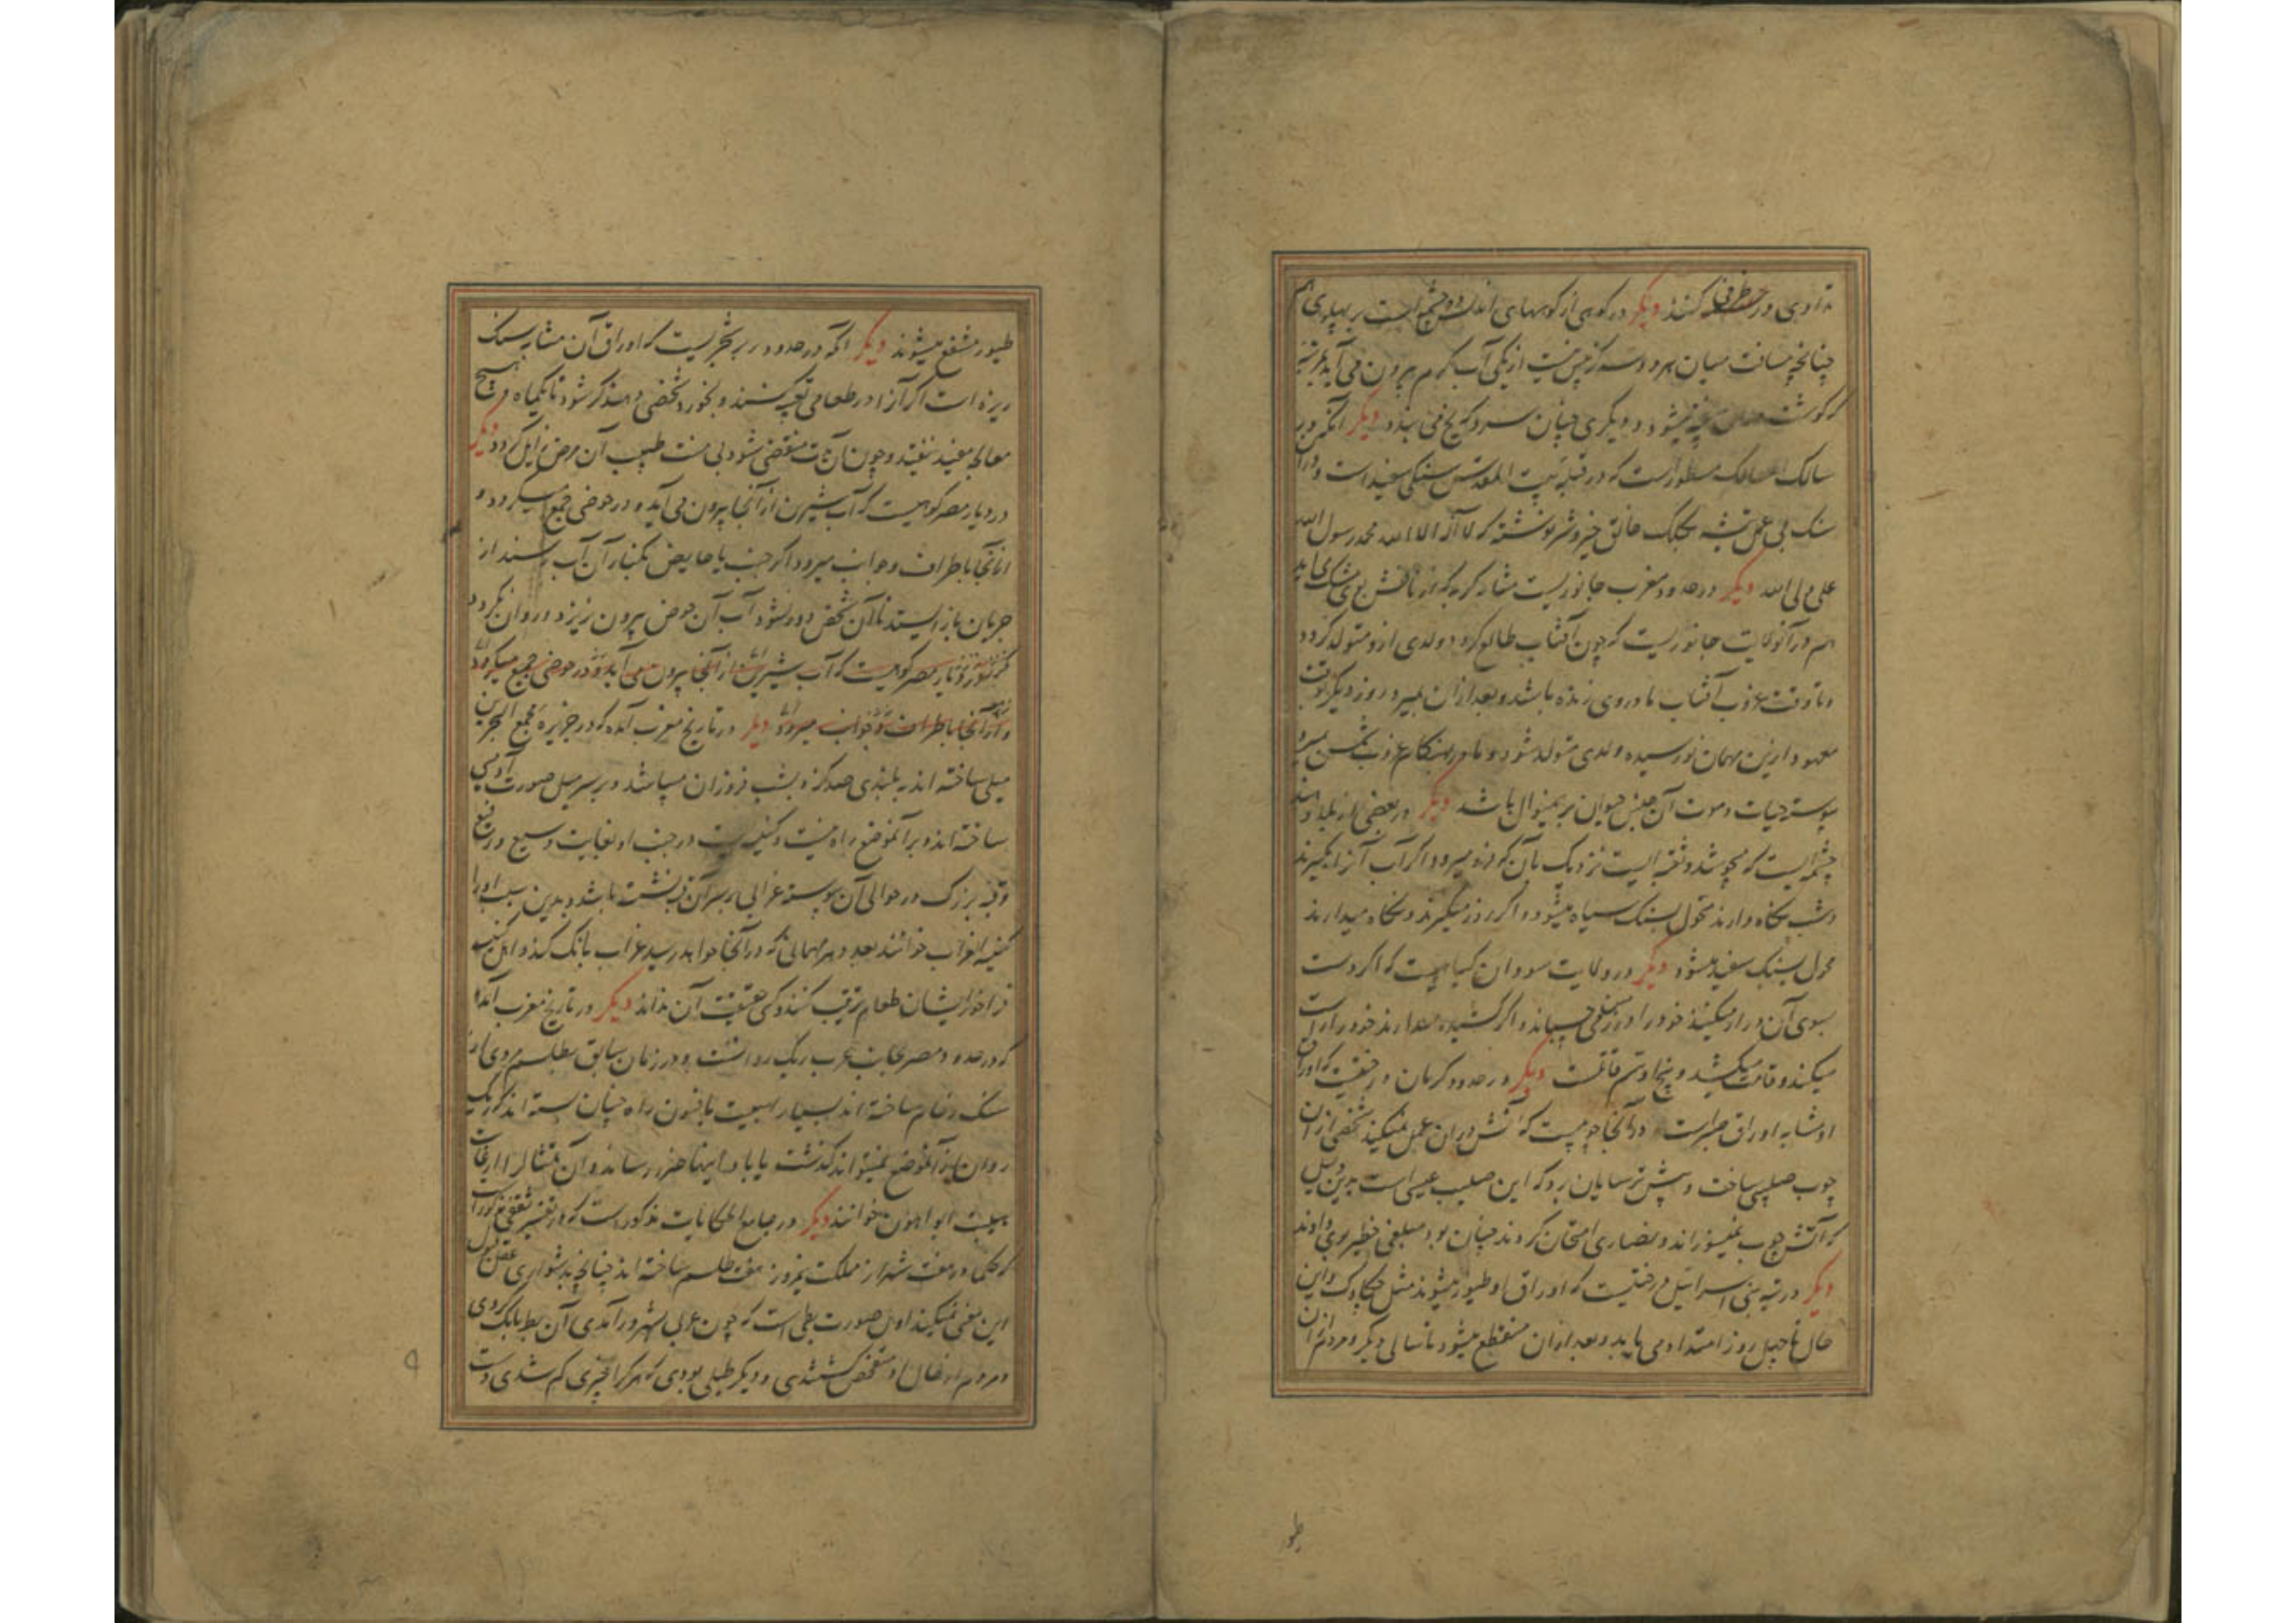 تداوی در
دیگر در کوهی از کوههای اندلس دو چشمه است بر پهلوی هم
چنانچه مسافت میان هر دو سه گز بیش نیست از یکی آب گرم بیرون می آید بمرتبه
که گوشت پخته میشود و دیگری چنان سرد که یخ می بندد دیگر آنکه در
سالک الممالک مسطور است که در قبله بیت المقدس سنگی سفید است و در آن
سنگ بی عمل تیشه بکلک خالق خیر و شر نوشته که لا اله الا الله محمد رسول الله
علی ولی الله دیگر در حدود مغرب جانوریست مشابه گربه که از نافش بوی مشک می آید
هم در آنولایت جانوریست که چون آفتاب طالع گردد ولدی ازو متولد گردد
و تا وقت غروب آفتاب مادر وی زنده باشد و بعد از آن بمیرد روز دیگر بوقت
معهود ازین مهمان نورسیده ولدی متولد شود و مادر بهنگام غروب شمس بمیرد
پیوسته حیات و موت آن جنس حیوان بر ینمنوال باشد دیگر در بعضی از بلاد هند
چشمه ایست که میجوشد و ثقبه ایست نزدیک بآن که فرو میرود اگر آب آنرا بگیرند
و شب نگاه دارند محول بسنگ سیاه میشود و اگر روز میگیرند و نگاه میدارند
محول بسنگ سفید میشود دیگر در ولایت سودان گیاهیست که اگر دست
بسوی آن دراز میکنند خود را در زمین می چسپاند و اگر کشیده میدارند خود را راست
میکند و قامت میکشد و پنجاه و ستم قامتست دیگر در حدود کرمان درختیست که اوراق
او مشابه اوراق صبر است و در آنجا چوبیست که آتش در آن عمل نمیکند شخصی از آن
چوب صلیبی ساخت و پیش ترسایان برد که این صلیب عیسی است بدین دلیل
که آتش چوب نمیسوزاند و نصاری امتحان کردند چنان بود مبلغی خطیر بوی دادند
دیگر در تیه بنی اسرائیل درختیست که اوراق او طیور میشوند مثل چکاوک و این
حال تا چهل روز امتداد می یابد و بعد از آن منقطع میشود تا سالی دیگر و مردم از آن
طیو
طیور منتفع میشوند دیگر آنکه در حدود بربر شجریست که اوراق آن مشابه سنگ
ریزه است اگر آنرا در طعامی تعبیه کنند و بخورد شخصی دهند کر شود تا یکماه و هیچ
معالجه مفید نیفتد و چون آن مدت منقضی شود بی منت طبیب آن مرض زایل گردد دیگر
در دیار مصر کوهیست که آب شیرین از آنجا بیرون می آید و در حوضی جمع میگردد و
از آنجا باطراف و جوانب میرود اگر جنب یا حایض بکنار آن آب رسند از
جریان باز ایستد تا آن شخص دور نشود آب آن حوض بیرون نریزد و روان نگردد
دیار مصر کوهیست که آب شیرین از آنجا بیرون می آید و در حوضی جمع میگردد
و از آنجا باطراف و جوانب میرود دیگر در تاریخ مغرب آمده که در جزیره مجمع البحرین
میلی ساخته اند به بلندی صد گز و بشب فروزان میباشد و بر سر میل صورت آدمی
ساخته اند و بر آنموضع راه نیست و کنیسه ایست در جنب او بغایت وسیع و رفیع
و قبه بزرگ در حوالی آن پیوسته غرابی بر سر آن قبه نشسته باشد و بدین سبب او را
کنیسة الغراب خوانند بعدد هر مهمانی که در آنجا خواهد رسید غراب بانگ کند و اهل کنیسه
فراخور ایشان طعام ترتیب کنند و کس حقیقت آن نداند دیگر در تاریخ مغرب آمده
که در حدود مصر بجانب غرب ریگ روانست و در زمان سابق بطلسم مردی از
سنگ رخام ساخته اند بسیار با هیبت بافسون راه چنان بسته اند که ریگ
روان از آنموضع نمیتواند گذشت یا بآبادانیها ضرر رساند و آن تمثال را از غایت
هیبت ابو الهول خوانند دیگر در جامع الحکایات مذکور است که در تفسیر ثعلبی مذکور است
که حکما در هفت شهر از مملکت نمرود هفت طلسم ساخته اند چنانچه بدشواری عقل قبول
این معنی میکند اول صورت بطی است که چون غریبی بشهر در آمدی آن بط بانگ کردی
و مردم از حال او متفحص گشتندی و دیگر طبلی بودی که هر که را چیزی گم شدی دست